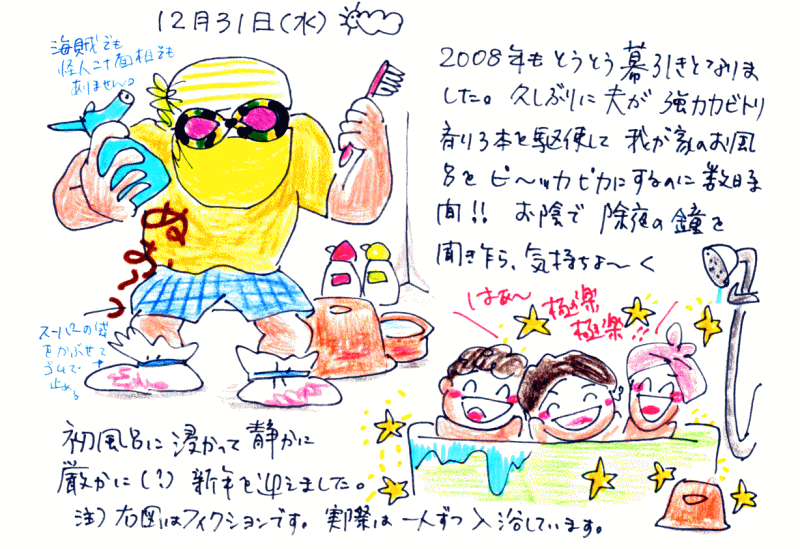 12月31日(水)
海賊でも
怪人二十面相でも
ありません。
2008年もとうとう幕引きとなりま
した。久しぶりに夫が強力カビトリ
香り3本を駆使して我が家のお風
呂をピ〜ッカピカにするのに数時
間!! お陰で除夜の鐘を
聞き乍ら、気持ちよ〜く
ぬお〜っ
はあ〜
極楽
極楽!!
スーパーの袋
をかぶせて
ゴムで
止める
初風呂に浸かって静かに
厳かに(?)新年を迎えました。
注)右図はフィクションです。実際は一人ずつ入浴しています。